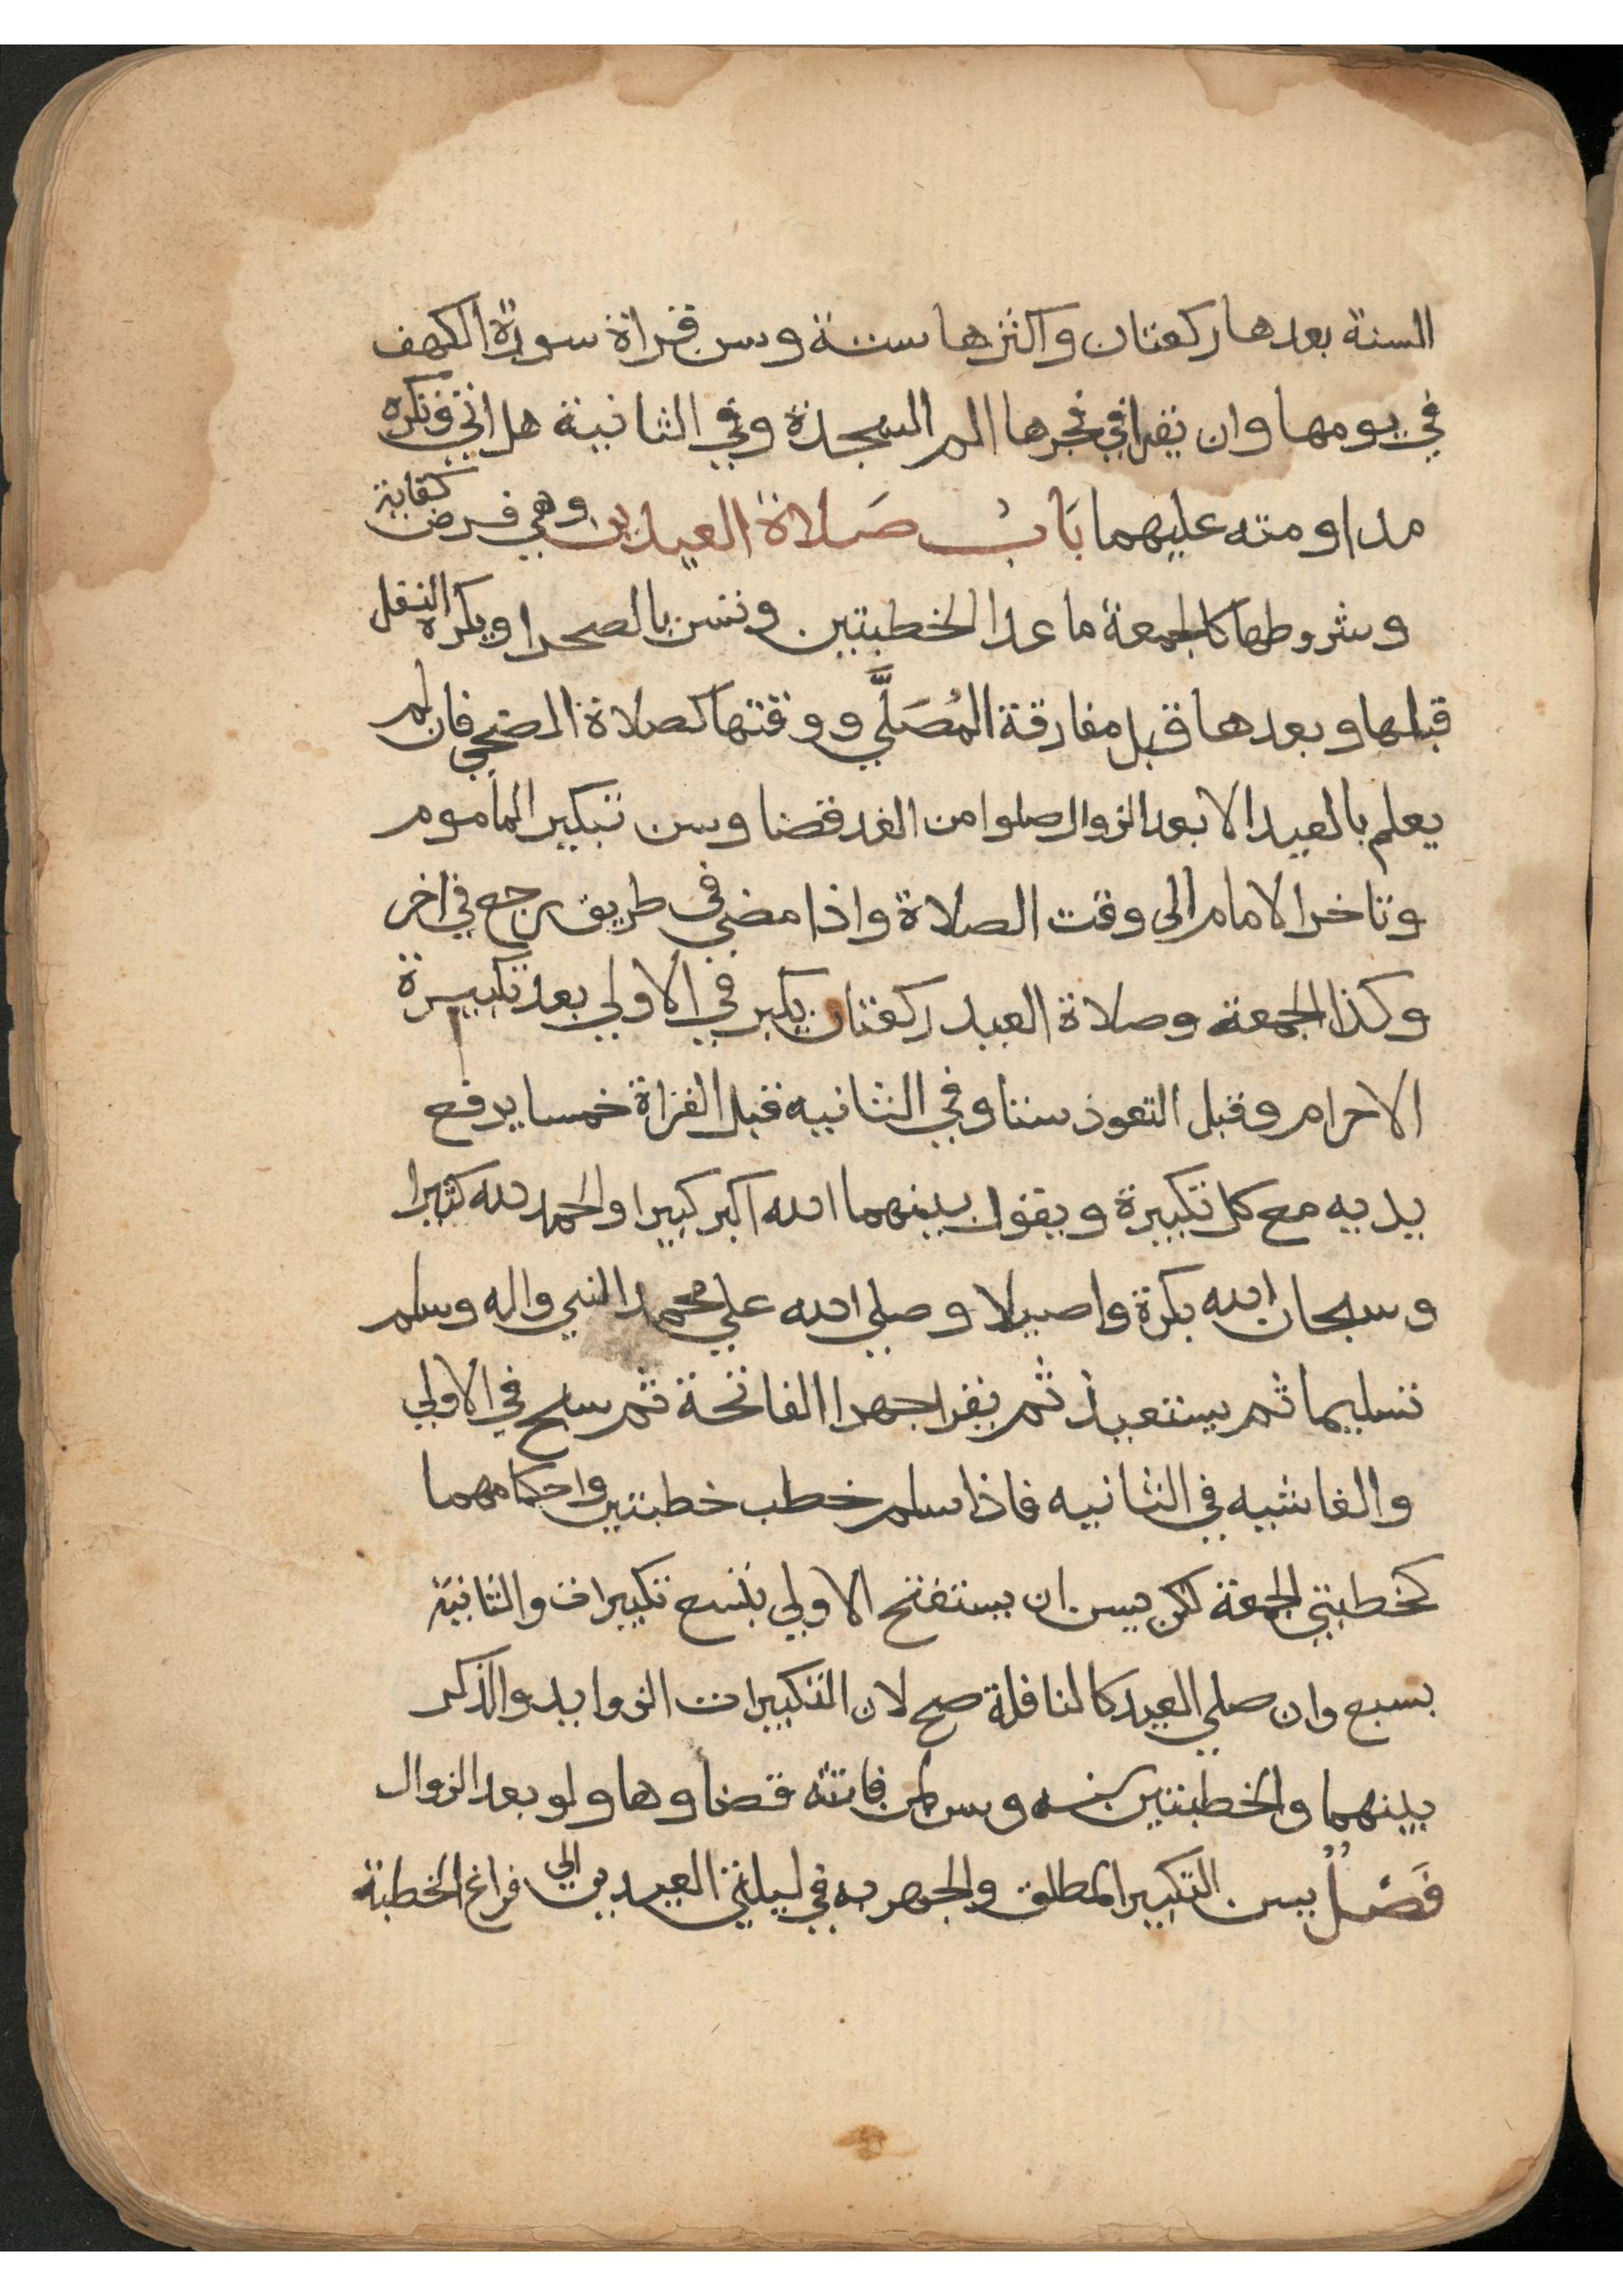 السنة بعدها ركعتان واكثرها ستة وسن قراة سورة الكهف
في يومها وان يقرا في فجرها الم السجدة وفي الثانية هل اتي وتكره
مداومته عليهما بَابُ صَلاة العيدين وهي فرض كفاية
وشروطها كالجمعة ما عدا الخطبتين وتسن بالصحرا ويكره النفل
قبلها وبعدها قبل مفارقة المُصَلَّي ووقتها كصلاة الضحي فان لم
يعلم بالعيد الا بعد الزوال صلوا من الغد قضا وسن تبكير المأموم
وتاخر الامام الى وقت الصلاة واذا مضي في طريق رجع في اخر
وكذا الجمعة وصلاة العيد ركعتان يكبر في الاولي بعد تكبيرة
الاحرام وقبل التعوذ ستا وفي الثانيه قبل القراة خمسا يرفع
يديه مع كل تكبيرة ويقول بينهما الله اكبر كبيرا والحمد لله كثيرا
وسبحان الله بكرة واصيلا وصلي الله علي محمد النبي واله وسلم
تسليما ثم يستعيذ ثم يقرا جهرا الفاتحة ثم سبح في الاولي
والغاشيه في الثانيه فاذا سلم خطب خطبتين واحكامهما
كخطبتي الجمعة لكن يسن ان يستفتح الاولي بتسع تكبيرات والثانية
بسبع وان صلي العيد كالنافلة صح لان التكبيرات الزوايد والذكر
بينهما والخطبتين سنه وسن لمن فاتته قضاوها ولو بعد الزوال
فَصْلُ يسن التكبير المطلق والجهر به في ليلتي العيدين الي فراغ الخطبة